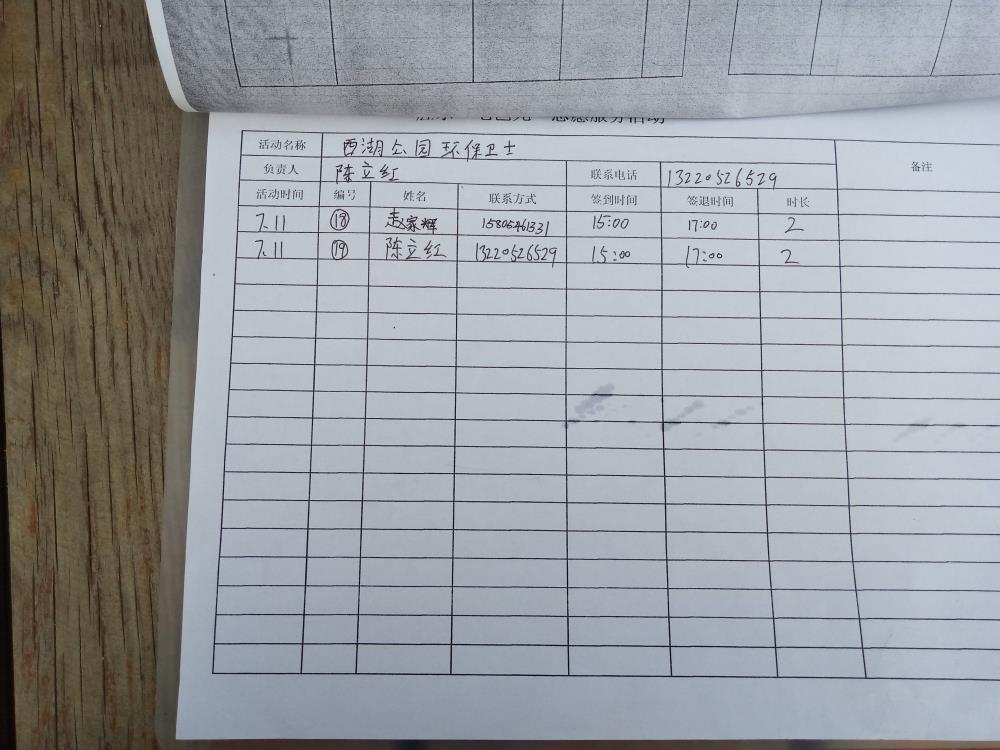 志愿服务活动
活动名称 西湖公园环保卫士 备注
负责人 陈立红 联系电话 13220526529
活动时间 编号 姓名 联系方式 签到时间 签退时间 时长
7.11 ⑱ 赵家辉 15805461331 15:00 17:00 2
7.11 ⑲ 陈立红 13220526529 15:00 17:00 2